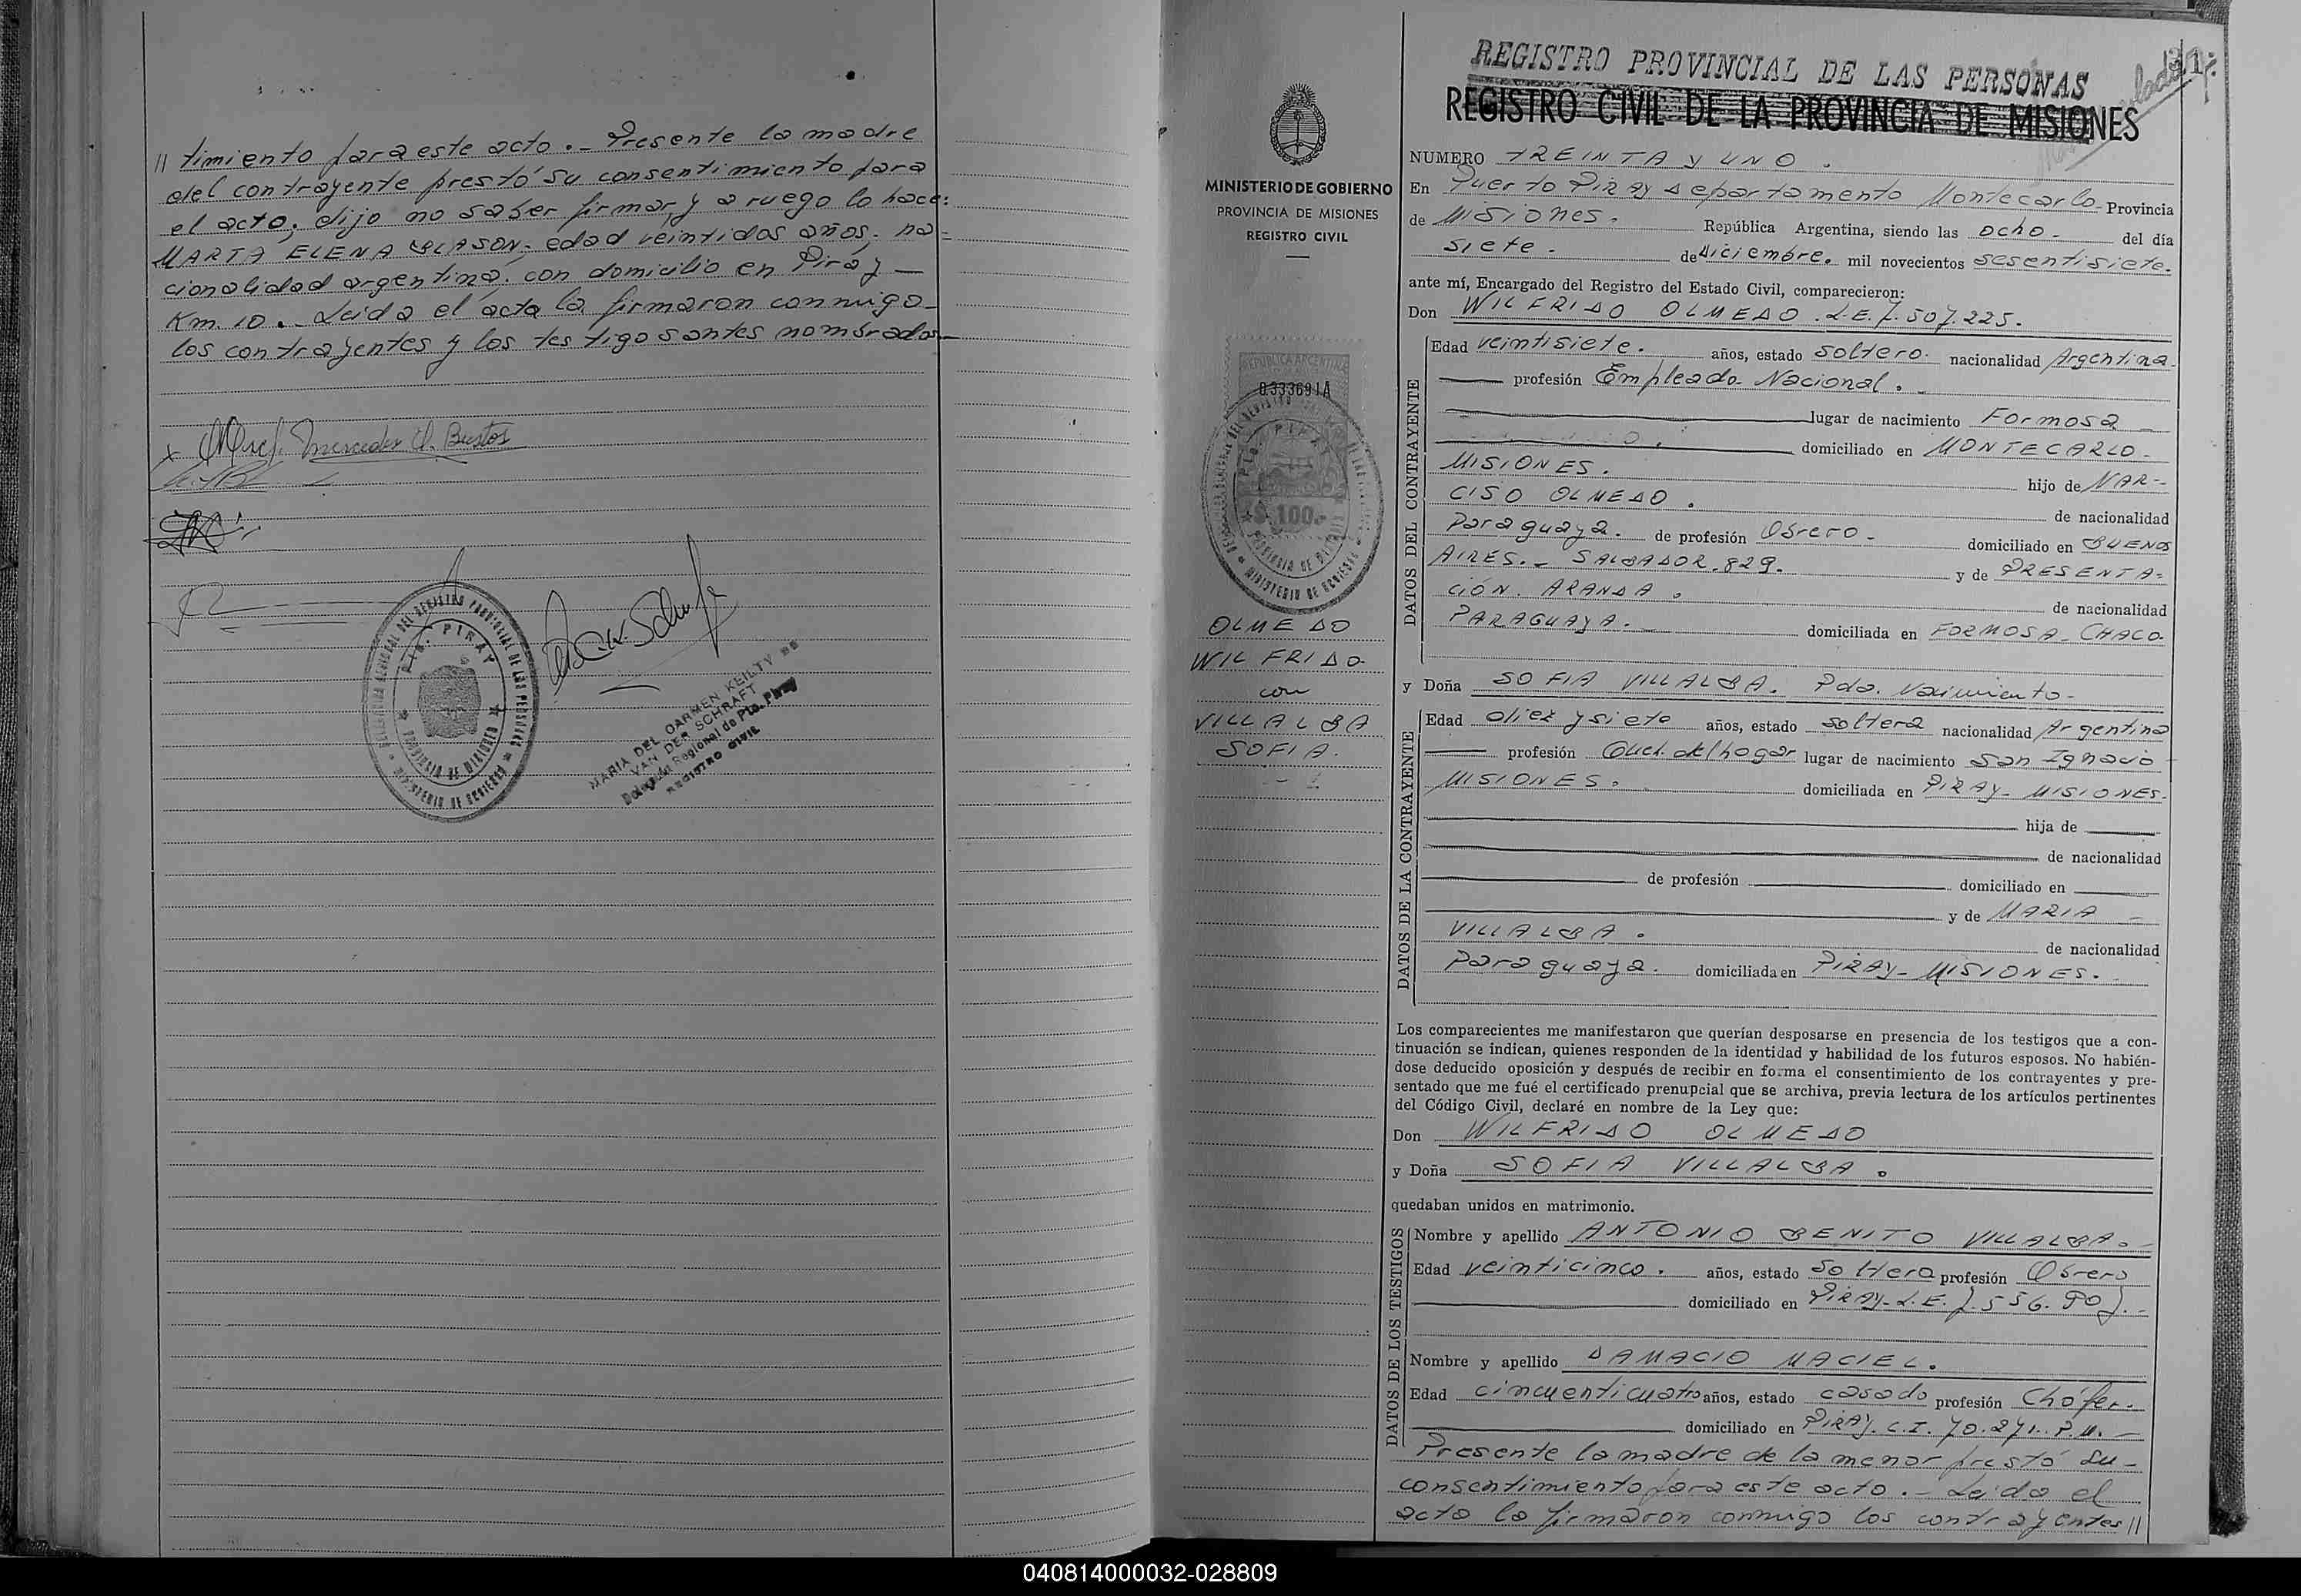 // timiento para este acto.- Presente la madre
del contrayente prestó su consentimiento para
el acto, dijo no saber firmar, y a ruego lo hace:
MARTA ELENA BLASON- edad veintidos años. na=
cionalidad argentina, con domicilio en Piráy-
Km. 10.- Leida el acta la firmaron conmigo-
los contrayentes y los testigos antes nombrados-
Mercedes Bustos
Pto. PIRAY
MARIA DEL CARMEN KEILTY de
VAN DER SCHRAFT
Delegada Regional de Pto. Piray
REGISTRO CIVIL
MINISTERIO DE GOBIERNO
PROVINCIA DE MISIONES
REGISTRO CIVIL
REPUBLICA ARGENTINA
0333691A
$ 100.-
OLMEDO
WILFRIDO-
con
VILLALBA
SOFIA.
31
REGISTRO PROVINCIAL DE LAS PERSONAS
REGISTRO CIVIL DE LA PROVINCIA DE MISIONES
NUMERO TREINTA y UNO.
En Puerto Piray departamento Montecarlo- Provincia
de Misiones. República Argentina, siendo las ocho- del día
siete- de diciembre. mil novecientos sesentisiete.
ante mí, Encargado del Registro del Estado Civil, comparecieron:
Don WILFRIDO OLMEDO. L.E. 7.507.225.
DATOS DEL CONTRAYENTE
Edad veintisiete. años, estado soltero. nacionalidad Argentina-
profesión Empleado Nacional.-
lugar de nacimiento Formosa-
domiciliado en MONTECARLO-
MISIONES. hijo de NAR-
CISO OLMEDO. de nacionalidad
Paraguaya. de profesión Obrero- domiciliado en BUENOS
AIRES.- SALBADOR. 829. y de PRESENTA-
CIÓN. ARANDA. de nacionalidad
PARAGUAYA.- domiciliada en FORMOSA- CHACO-
y Doña SOFIA VILLALBA. Pda. Nacimiento-
DATOS DE LA CONTRAYENTE
Edad diez y siete años, estado soltera nacionalidad Argentina
profesión Queh. del hogar lugar de nacimiento San Ignacio
MISIONES. domiciliada en PIRAY- MISIONES-
hija de
de nacionalidad
de profesión domiciliado en
y de MARIA-
VILLALBA. de nacionalidad
Paraguaya. domiciliada en PIRAY- MISIONES.-
Los comparecientes me manifestaron que querían desposarse en presencia de los testigos que a con-
tinuación se indican, quienes responden de la identidad y habilidad de los futuros esposos. No habién-
dose deducido oposición y después de recibir en forma el consentimiento de los contrayentes y pre-
sentado que me fué el certificado prenupcial que se archiva, previa lectura de los artículos pertinentes
del Código Civil, declaré en nombre de la Ley que:
Don WILFRIDO OLMEDO
y Doña SOFIA VILLALBA.
quedaban unidos en matrimonio.
DATOS DE LOS TESTIGOS
Nombre y apellido ANTONIO BENITO VILLALBA.-
Edad veinticinco. años, estado soltero profesión Obrero
domiciliado en PIRAY- L.E. 7.556.907.-
Nombre y apellido DAMACIO MACIEL.
Edad cincuenticuatro años, estado casado profesión Chófer-
domiciliado en PIRAY. C.I. 70.271. P.M.-
Presente la madre de la menor prestó su-
consentimiento para este acto.- Leida el
acta la firmaron conmigo los contrayentes//
040814000032-028809